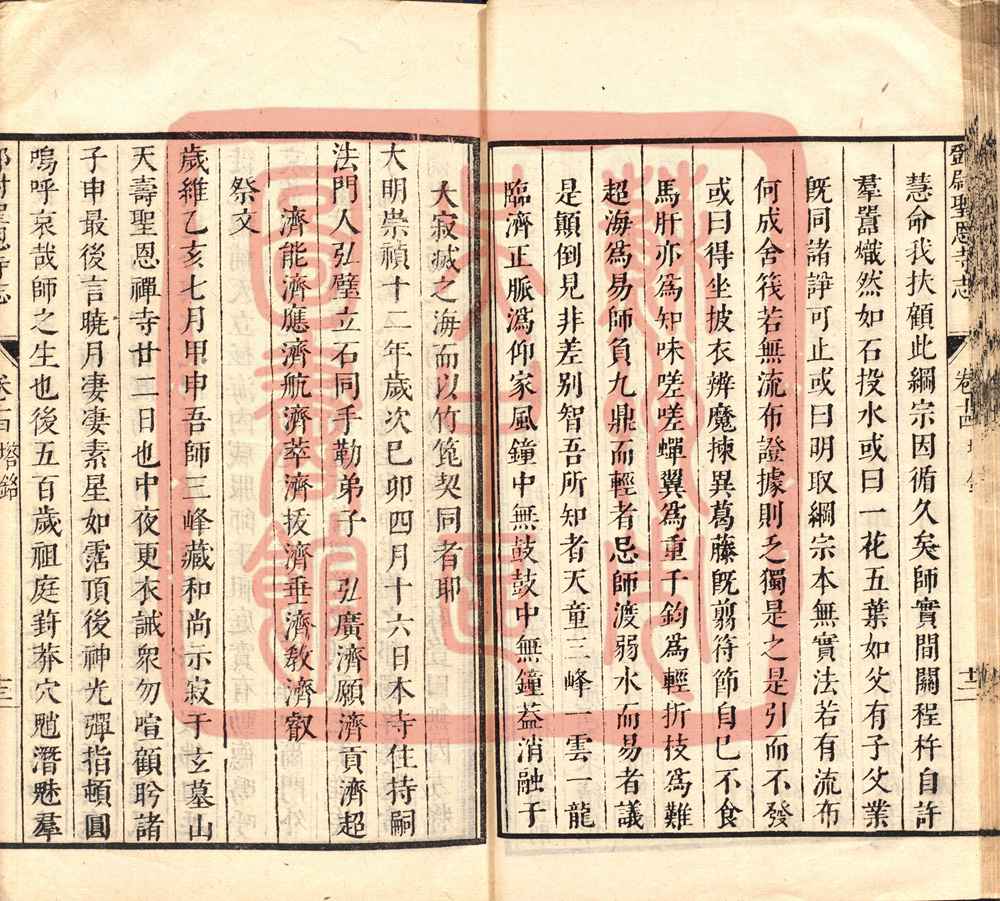 鄧尉聖恩寺志
卷十四
廿二
慧命我扶顧此綱宗因循久矣師實間關程杵自許
羣囂熾然如石投水或曰一花五葉如父有子父業
旣同諸諍可止或曰明取綱宗本無實法若有流布
何成舍筏若無流布證據則乏獨是之是引而不發
或曰得坐披衣辨魔揀異葛藤旣剪符節自巳不食
馬肝亦爲知味嗟嗟蟬翼爲重千鈞爲輕折枝爲難
超海爲易師負九鼎而輕者忌師渡弱水而易者議
是顚倒見非差别智吾所知者天童三峰一雲一龍
臨濟正脈潙仰家風鐘中無鼓鼓中無鐘益消融于
大寂㓕之海而以竹篦契同者耶
大明崇禎十二年歲次巳卯四月十六日本寺住持嗣
法門人弘璧立石同手勒弟子 弘廣濟願濟貢濟超
濟能濟應濟航濟萃濟㧞濟垂濟敎濟叡
祭文
歲維乙亥七月甲申吾師三峰藏和尚示寂于玄墓山
天壽聖恩禪寺廿二日也中夜更衣誡衆勿喧顧聆諸
子申最後言曉月凄凄素星如霑頂後神光彈指頓圓
嗚呼哀哉師之生也後五百歲祖庭葑莽穴虺潛魅羣
塔銘